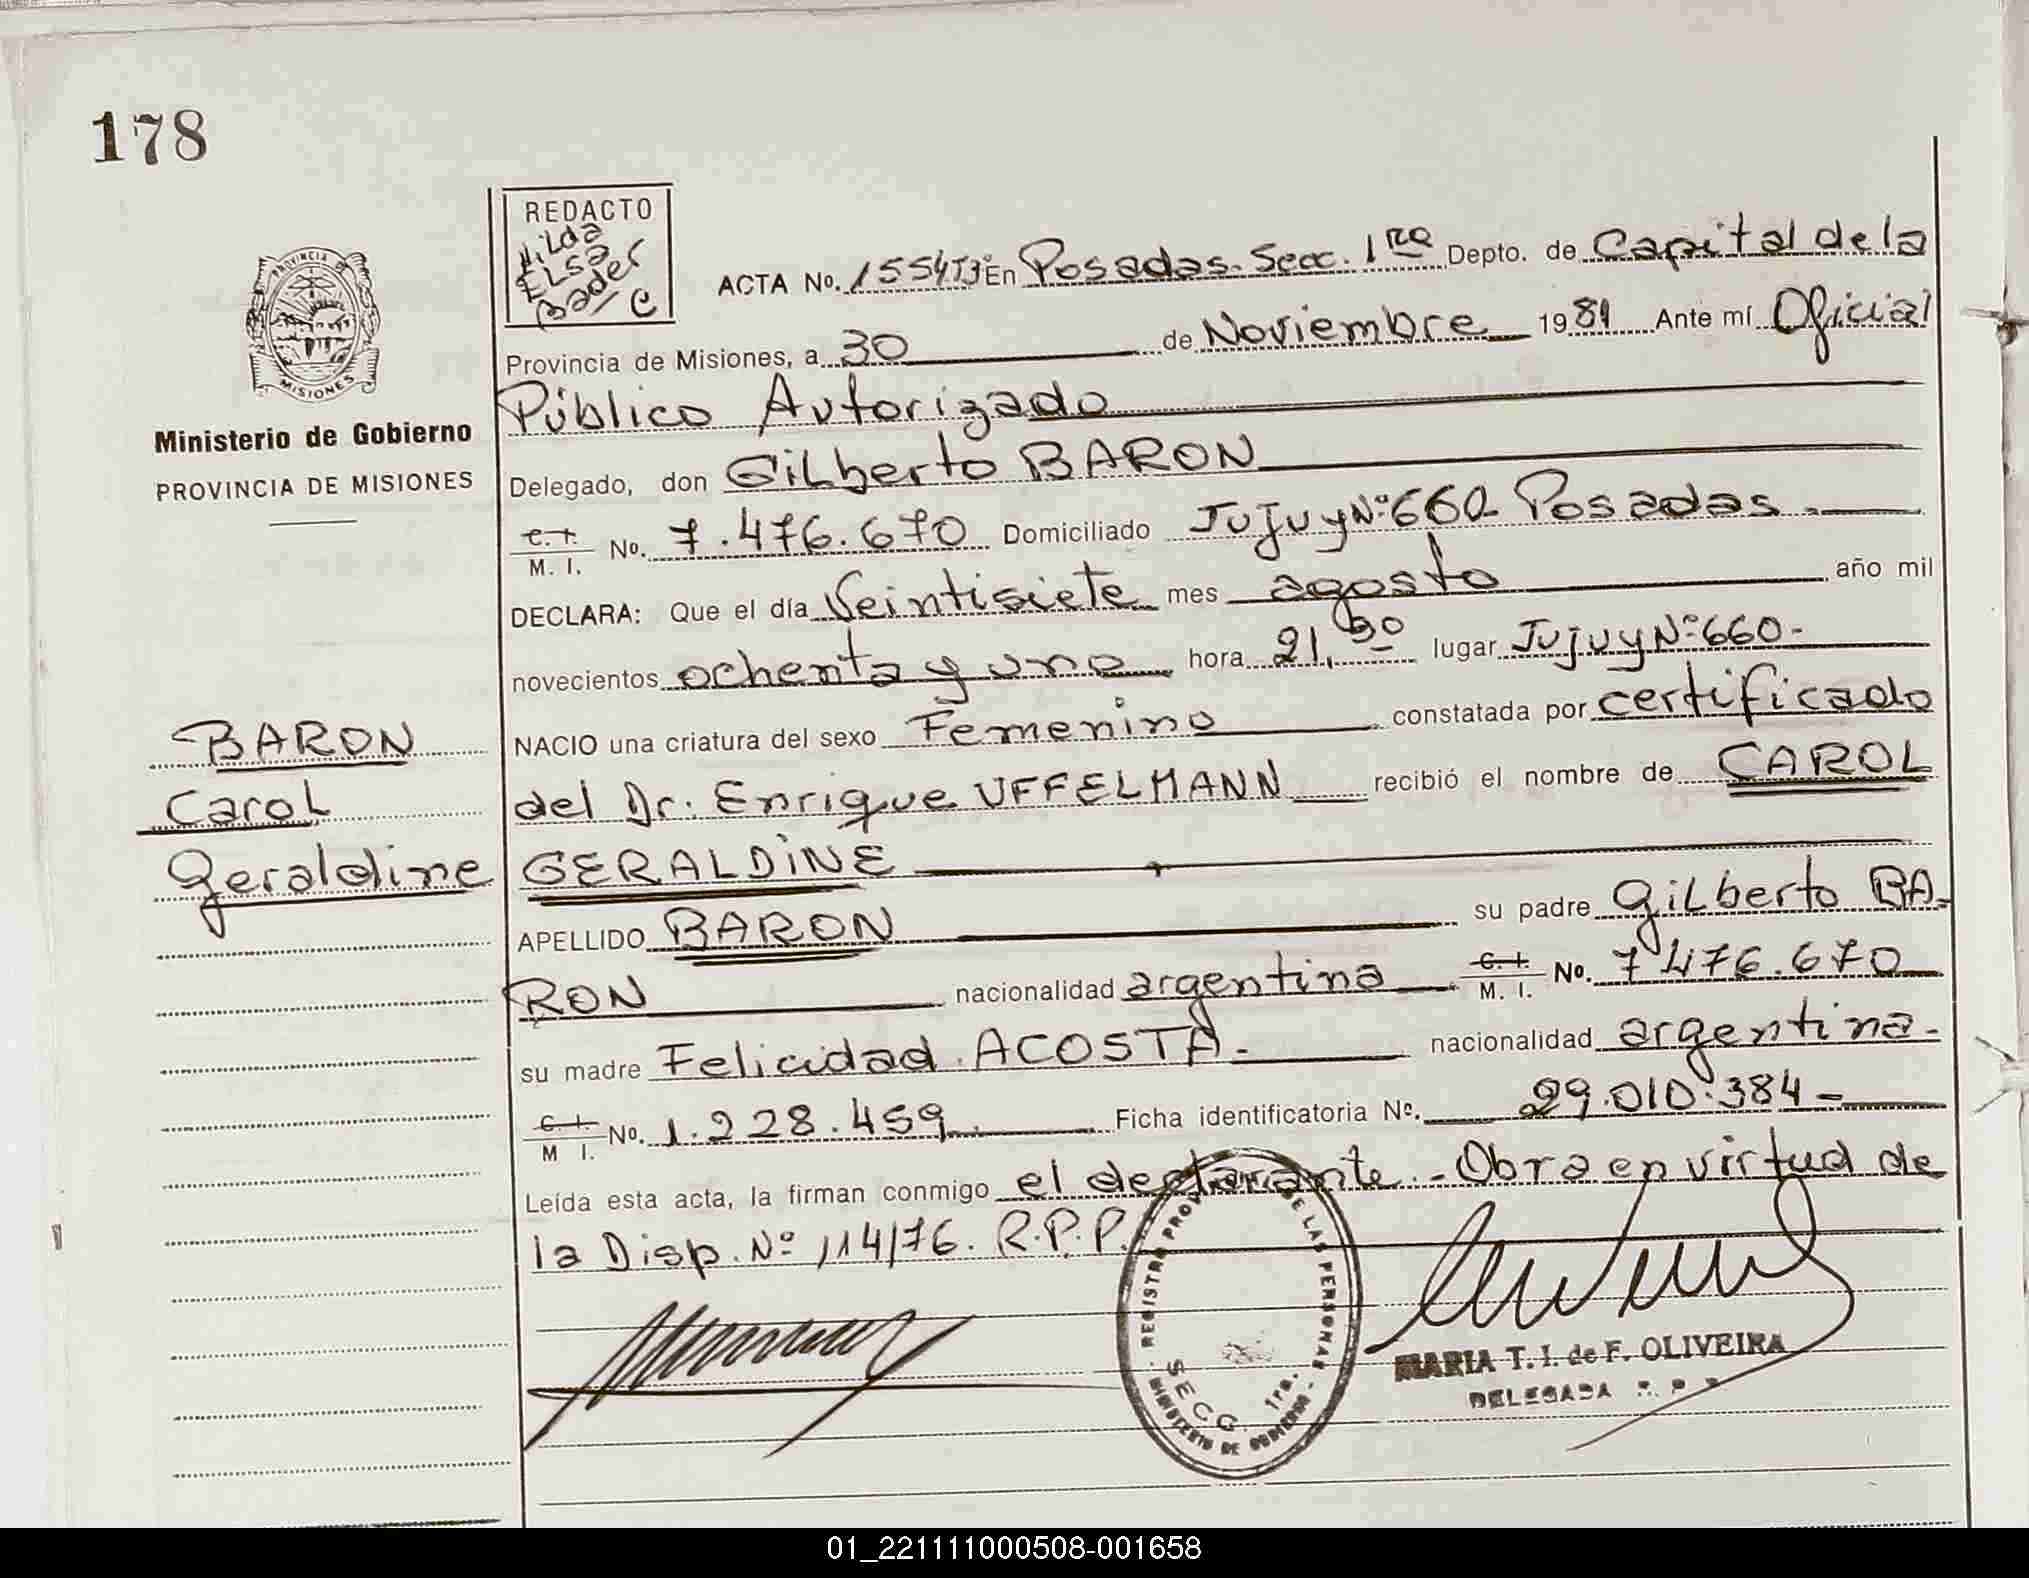 178
REDACTO
Hilda
ELsa
Bader
C
PROVINCIA DE
MISIONES
Ministerio de Gobierno
PROVINCIA DE MISIONES
BARON
Carol
Geraldine
ACTA No. En Posadas. Secc. 1ra Depto. de Capital de la
Provincia de Misiones, a 30 de Noviembre 1981 Ante mí Oficial
Público Autorizado
Delegado, don GiLberto BARON
C.I. / M. I. No. 7.476.670 Domiciliado Jujuy Nº 660 Posadas.
DECLARA: Que el día Veintisiete mes agosto año mil
novecientos ochenta y uno hora 21,30 lugar Jujuy Nº 660-
NACIO una criatura del sexo Femenino constatada por certificado
del Dr. Enrique UFFELMANN recibió el nombre de CAROL
GERALDiNE
APELLIDO BARON su padre GiLberto BA-
RON nacionalidad argentina C.I. / M. I. No. 7.476.670
su madre Felicidad ACOSTA- nacionalidad argentina-
C.I. / M I. No. 1.228.459. Ficha identificatoria No. 29.010.384-
Leída esta acta, la firman conmigo el declarante.- Obra en virtud de
la Disp. Nº 114/76. R.P.P.
REGISTRO PROV DE LAS PERSONAS
SECC. 1ra.
MINISTERIO DE GOBIERNO
MARIA T. I. de F. OLIVEIRA
DELEGADA
01_221111000508-001658